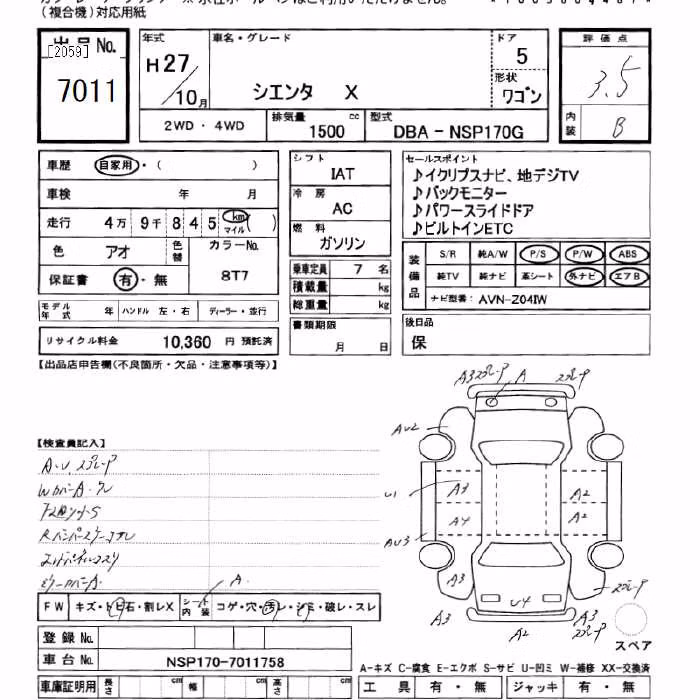 (複合機)対応用紙
出品No.
[2059]
7011
年式
H27
10月
車名・グレード
シエンタ X
ドア
5
形状
ワゴン
評価点
3.5
内装
B
2WD・4WD
排気量
1500 cc
型式
DBA-NSP170G
車歴
自家用・( )
車検 年 月
走行 4万 9千 8 4 5 km マイル ( )
色 アオ
色替
カラーNo.
8T7
保証書 有・無
モデル年式 年
ハンドル 左・右
ディーラー・並行
リサイクル料金 10,360 円 預託済
シフト
IAT
冷房
AC
燃料
ガソリン
乗車定員 7 名
積載量 kg
総重量 kg
書類期限
月 日
セールスポイント
♪イクリプスナビ、地デジTV
♪バックモニター
♪パワースライドドア
♪ビルトインETC
装備品
S/R 純A/W P/S P/W ABS
純TV 純ナビ 革シート 外ナビ エアB
ナビ型番: AVN-Z04IW
後日品
保
【出品店申告欄(不良箇所・欠品・注意事項等)】
【検査員記入】
A・U、スプレーP
FW キズ・トビ石・割レX
シート内装 コゲ・穴・汚レ・シミ・破レ・スレ
A
登録No.
車台No. NSP170-7011758
車庫証明用 長さ cm 幅 cm 高さ cm
A3 A
AU2
U1
A3
A4
A2
A2
AU3
A3
A2
A3
U4
A2
A3
スペア
A-キズ C-腐食 E-エクボ S-サビ U-凹ミ W-補修 XX-交換済
工具 有・無 ジャッキ 有・無